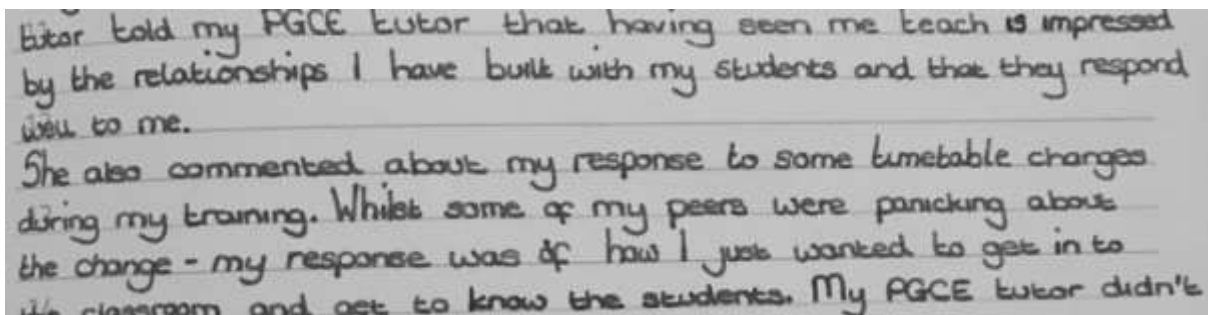 tutor told my PGCE tutor that having seen me teach is impressed
by the relationships I have built with my students and that they respond
well to me.
She also commented about my response to some timetable changes
during my training. Whilst some of my peers were panicking about
the change - my response was of how I just wanted to get in to
the classroom and get to know the students. My PGCE tutor didn't